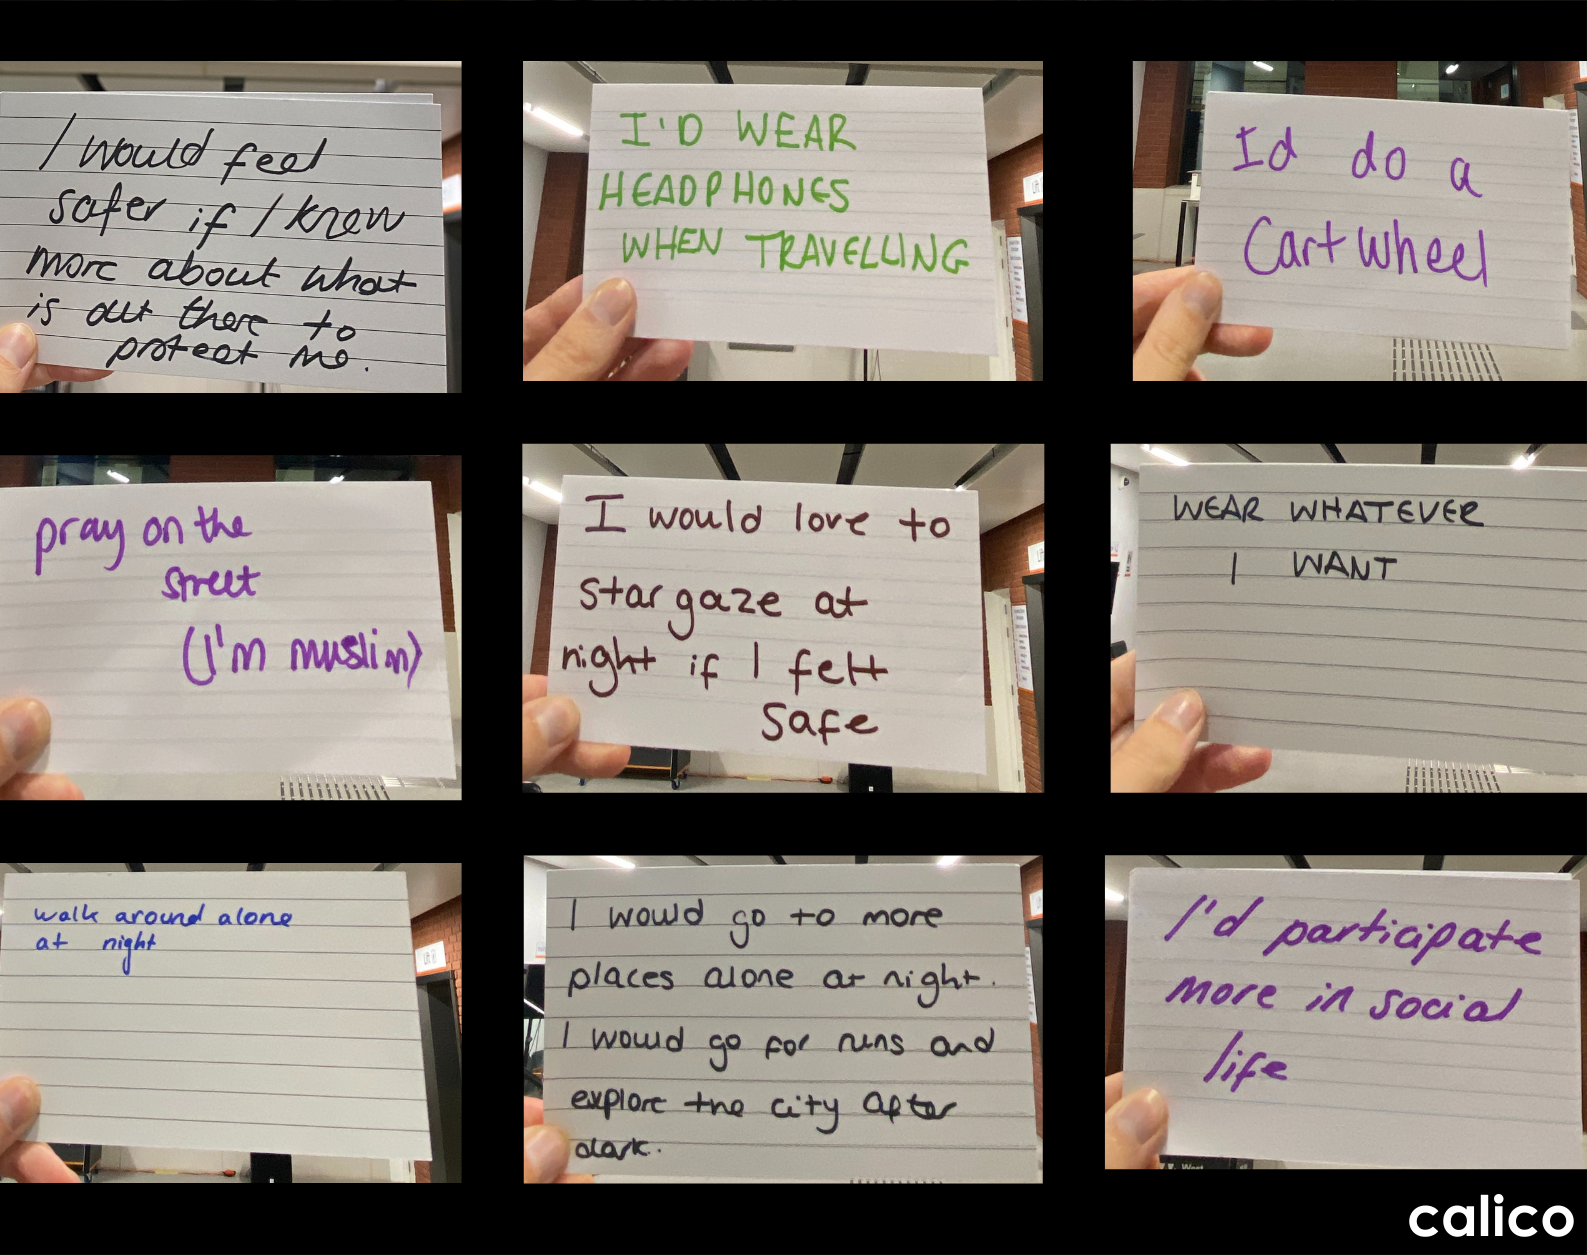 I would feel
safer if I knew
more about what
is out there to
protect me.
I'D WEAR
HEADPHONES
WHEN TRAVELLING
Id do a
Cartwheel
pray on the
street
(I'm muslim)
I would love to
stargaze at
night if I felt
safe
WEAR WHATEVER
I WANT
walk around alone
at night
I would go to more
places alone at night.
I would go for runs and
explore the city after
dark.
I'd participate
more in social
life
calico